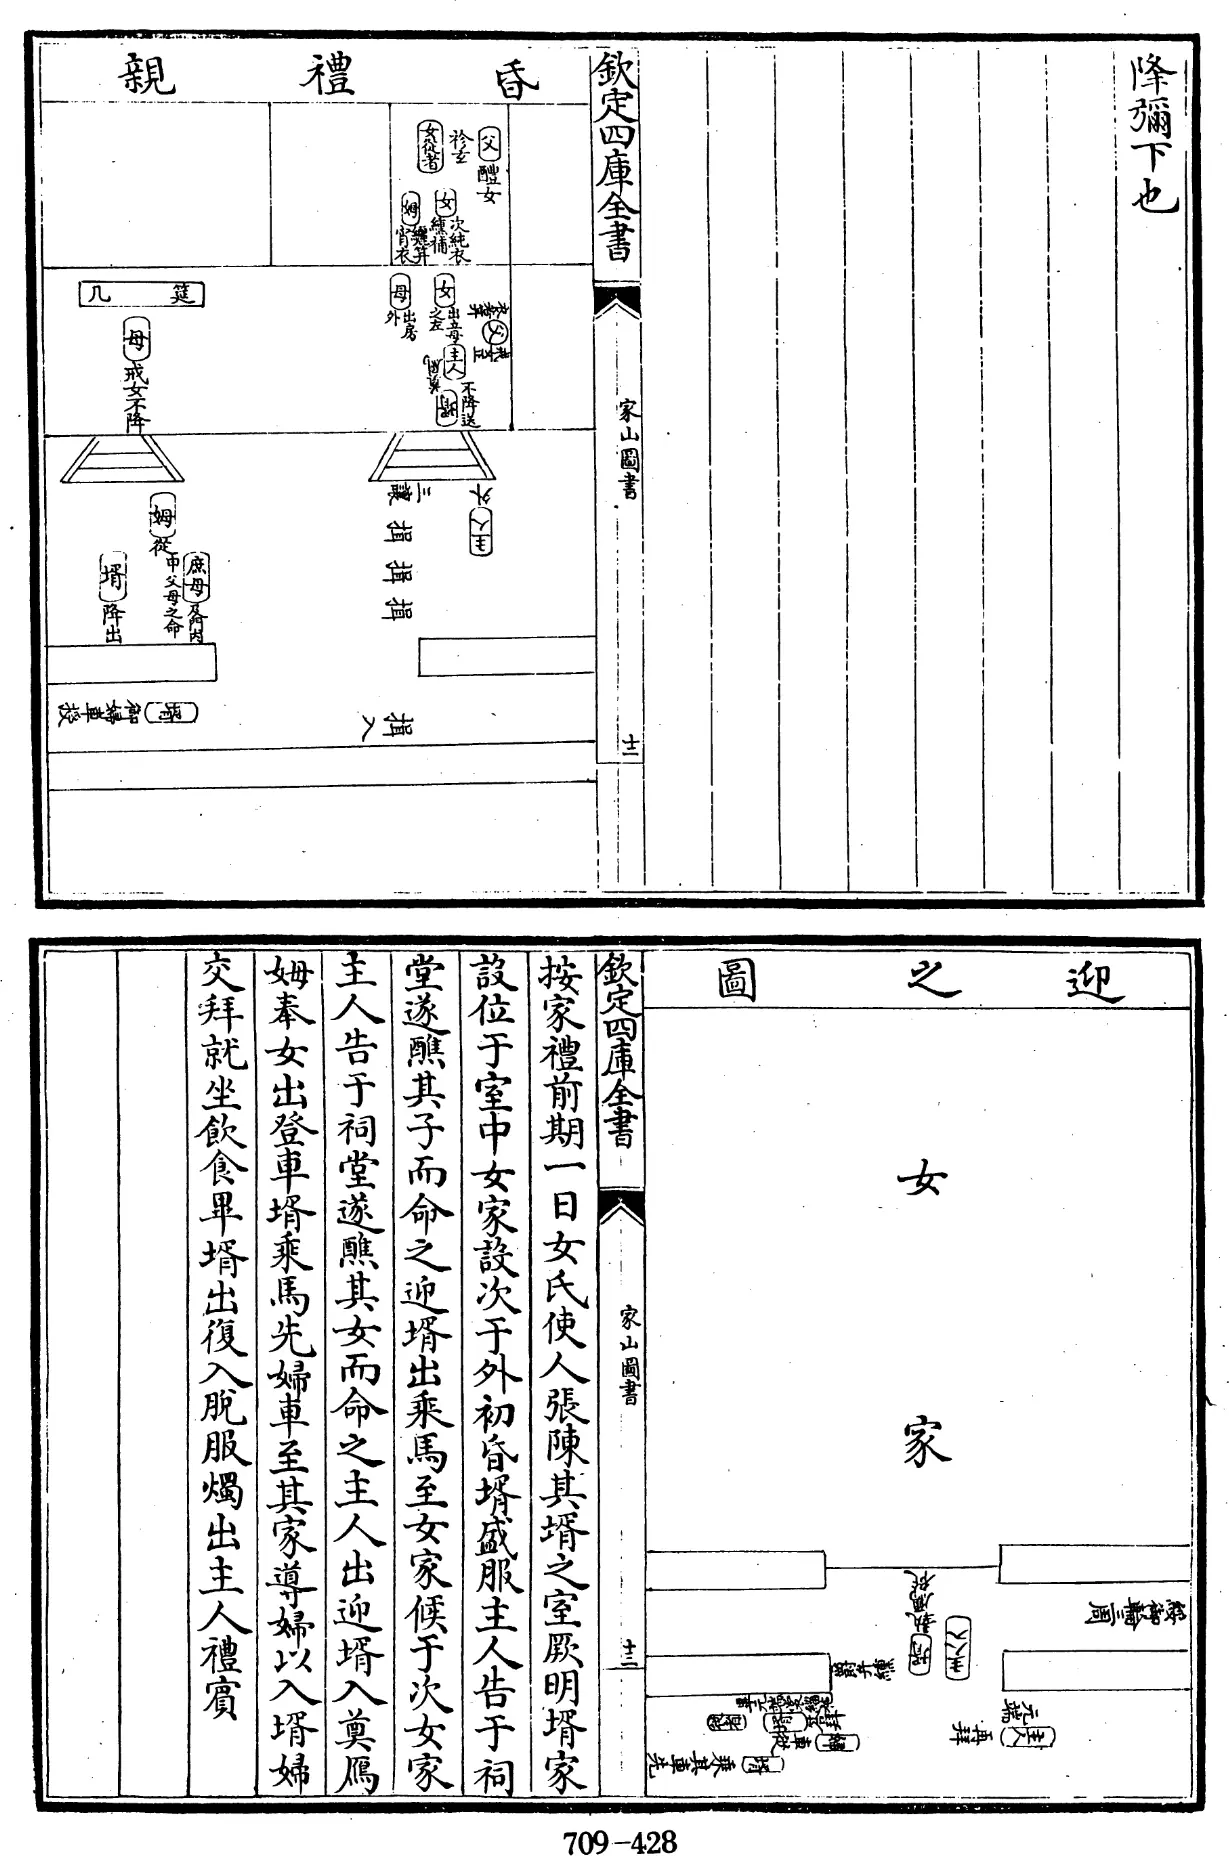 降彌下也
欽定四庫全書
家山圖書
十二
昏禮親
父
醴女
袗玄
女從者
女
次純衣
纁袡
姆
纚笄
宵衣
女
出立母
之左
母
出房
外
父
主人
不降送
筵 几
母
戒女不降
外
主人
三讓
揖
揖
揖
揖入
姆
從
庶母
及門內
申父母之命
壻
降出
壻
御婦車授
迎之圖
女家
主人
再拜
元端
主人入
壻
執鴈從
御輪三周
婦
車從
壻
乘其車先
欽定四庫全書
家山圖書
十二
按家禮前期一日女氏使人張陳其壻之室厥明壻家
設位于室中女家設次于外初昏壻盛服主人告于祠
堂遂醮其子而命之迎壻出乘馬至女家候于次女家
主人告于祠堂遂醮其女而命之主人出迎壻入奠鴈
姆奉女出登車壻乘馬先婦車至其家導婦以入壻婦
交拜就坐飲食畢壻出復入脫服燭出主人禮賓
709-428